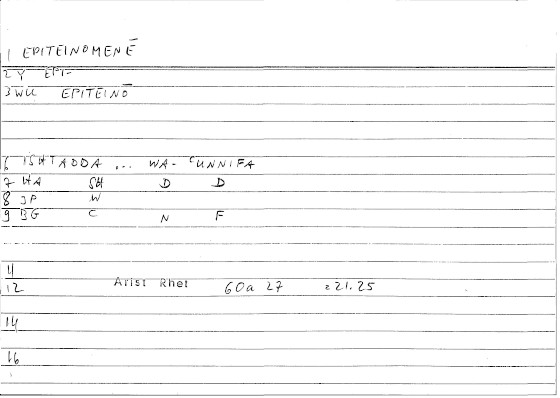 1 EPITEINOMENĒ
2 Y EPI-
3 WU EPITEINŌ
6 ISHTADDA ... WA- ʿUNNIFA
7 HA SH D D
8 JP W
9 BG C N F
11
12 Arist Rhet 60a 27 = 21.25
14
16